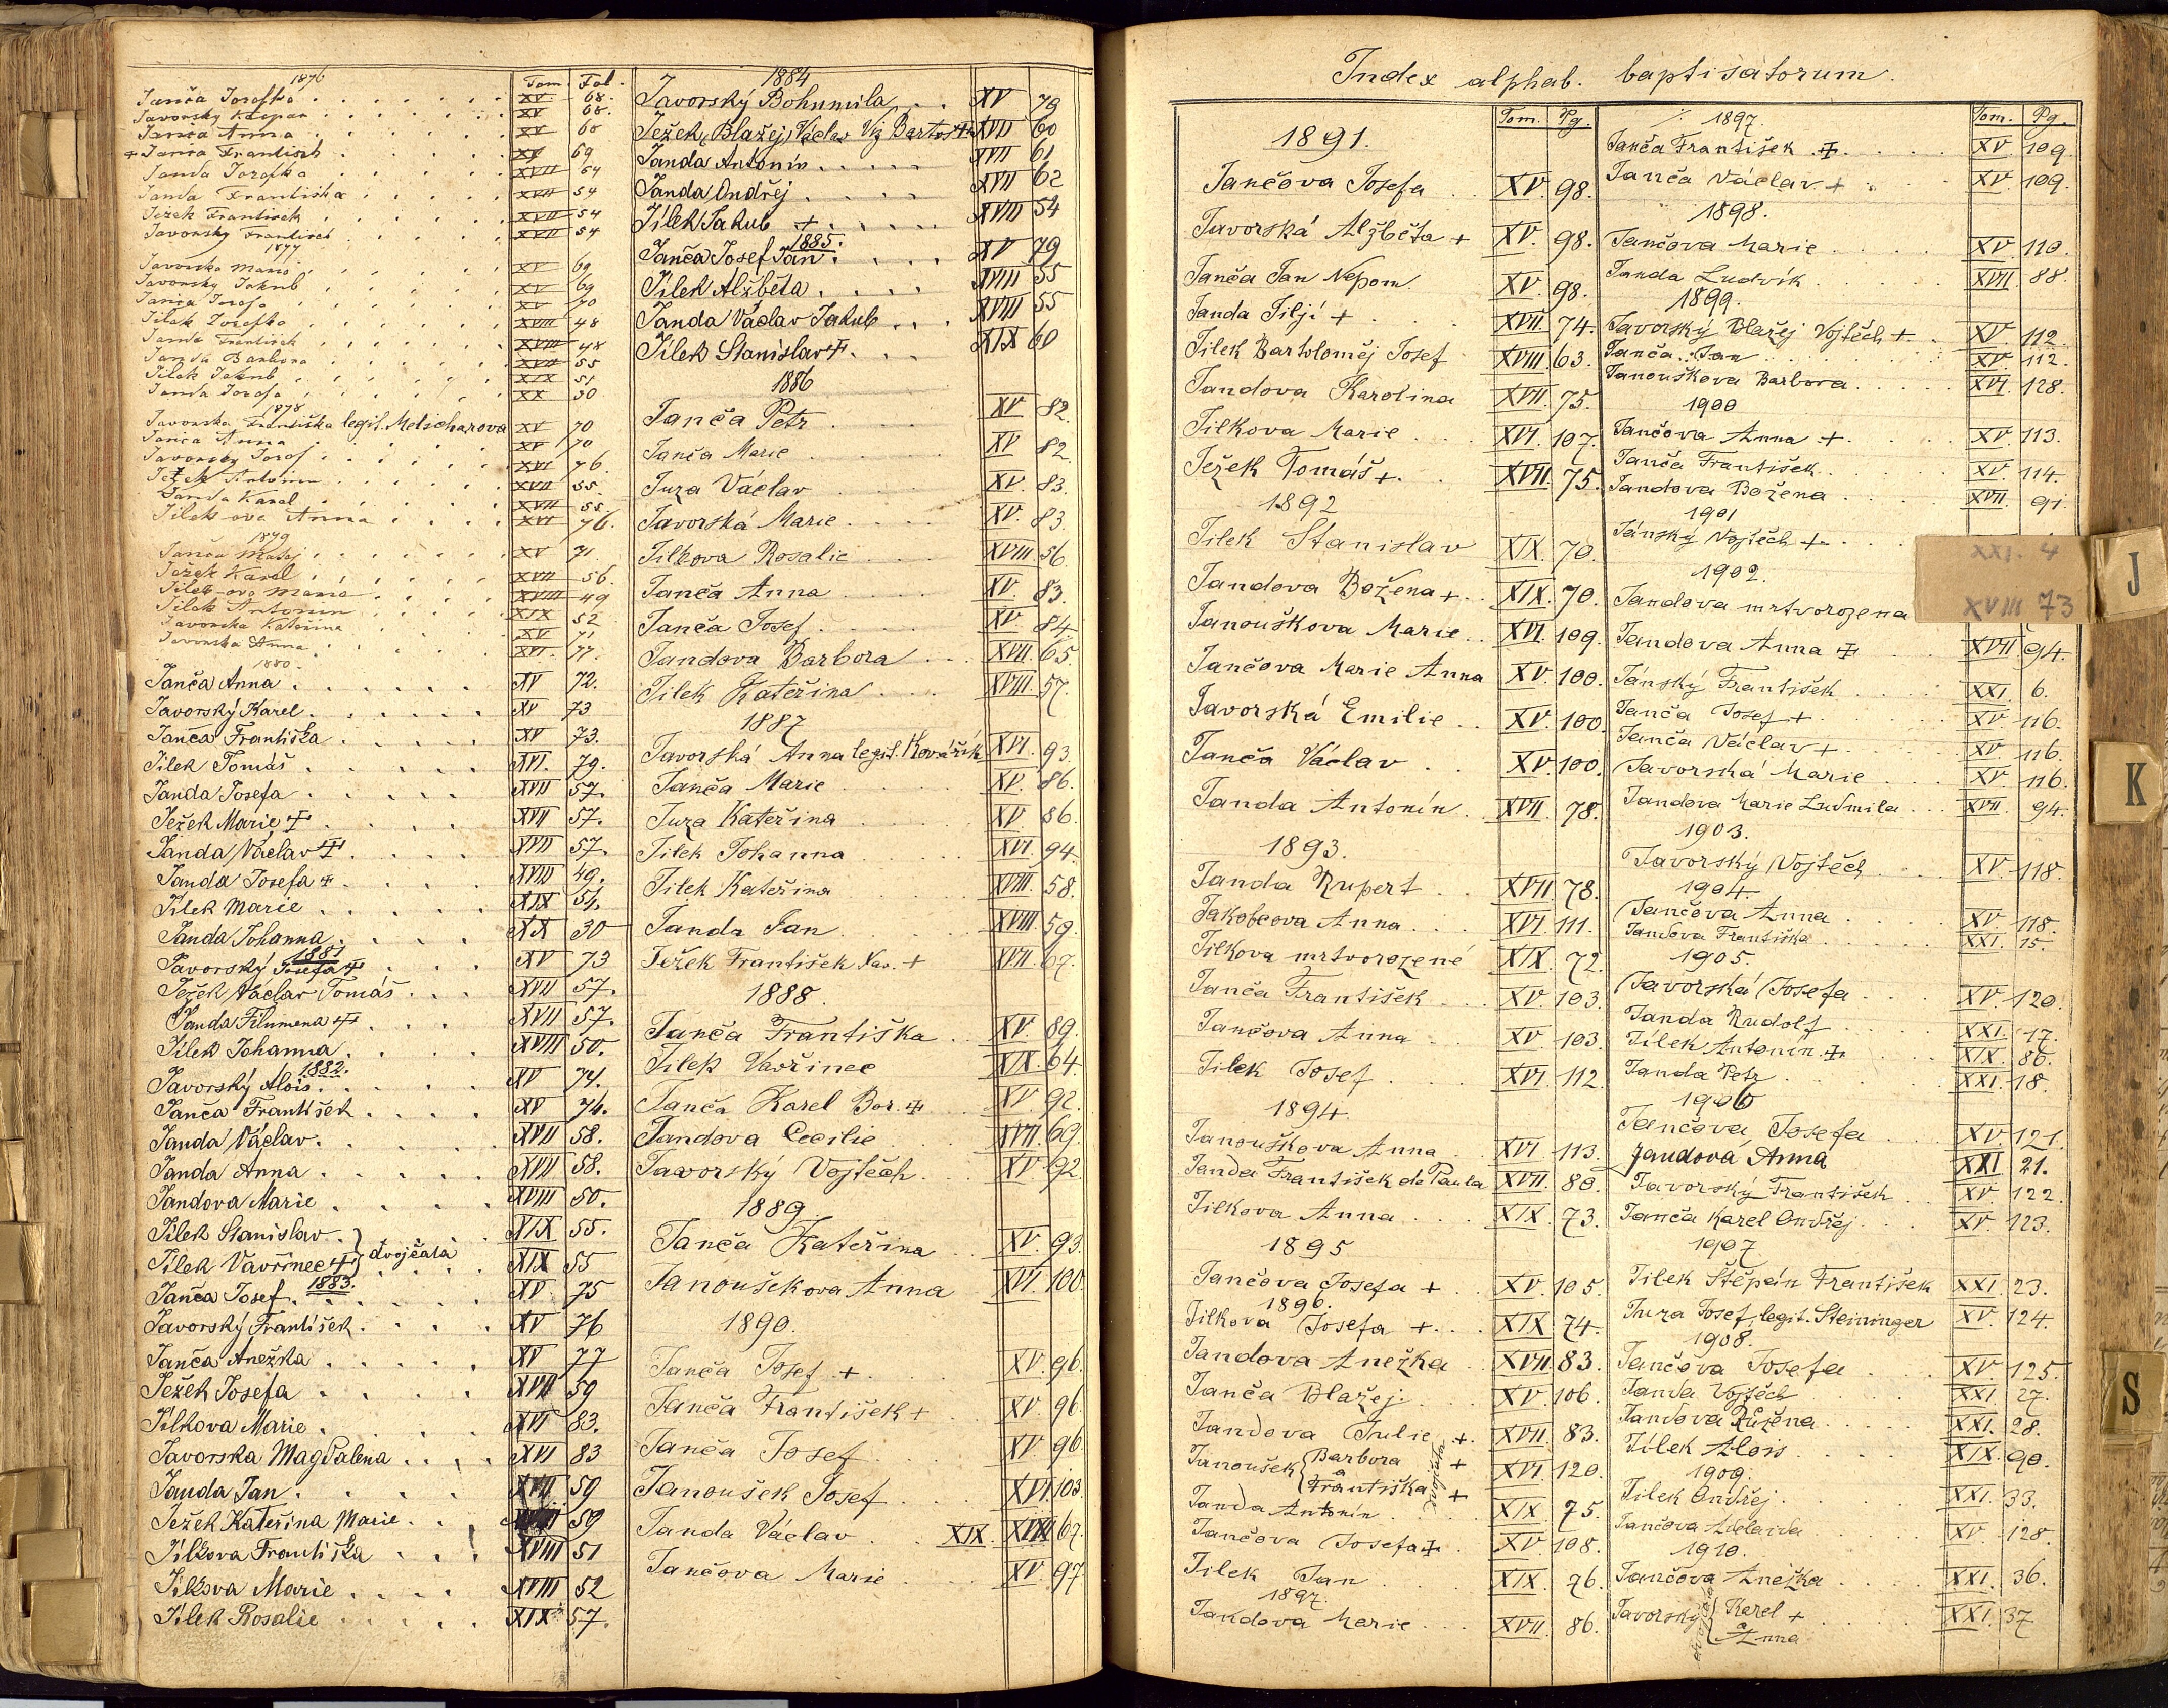 1876 Tom Fol.
Janča Josefka XV 68.
Javorsky Kašpar XV 68.
Janča Anna XV 60
+ Janča Frantisek XV 69
Janda Josefka XVIII 54
Janda Frantiska XVII 54
Ježek Frantisek XVII 54
Javorsky Frantisek XVII 54
1877
Javorska Maria XV 69
Javorsky Jakub XV 69
Janča Josefa XV 70
Jilek Josefka XVIII 48
Janda Frantisek XVIII 48
Janda Barbora XVII 55
Jilek Jakub XIX 51
Janda Josefa XX 30
1878
Javorska Františka legit. Melicharova XV 70
Janča Anna XV 70
Javorsky Josef XVI 76.
Ježek Antonin XVII 55.
Janda Karel XVII 55
Jilek ova Anna XVI 76.
1879
Janča Matej XV 71
Ježek Karel XVII 56.
Jilek-ova Maria XVIII 49
Jilek Antonin XIX 52
Javorska Kateřina XV 71
Javorska Anna XVI. 77.
1880.
Janča Anna XV 72.
Javorský Karel XV 73
Janča Františka XV 73.
Jílek Tomáš XVI. 79.
Janda Josefa XVII 57.
Ježek Marie ‡ XVII 57.
Janda Václav ‡ XVII 57.
Janda Josefa ‡ XVIII 49.
Jílek Marie XIX 54.
Janda Johanna XX 30
1881
Javorský Josefa ‡ XV 73
Ježek Václav Tomáš XVII 57.
Janda Filumena ‡ XVII 57.
Jílek Johanna XVIII 50.
1882.
Javorský Alois XV 74.
Janča František XV 74.
Janda Václav XVII 58.
Janda Anna XVII 58.
Jandova Marie XVIII 50.
Jílek Stanislav XIX 55.
Jílek Vavřinec ‡ } dvojčata XIX 55
1883.
Janča Josef XV 75
Javorský František XV 76
Janča Anežka XV 77
Ježek Josefa XVII 59
Jílkova Marie XVI 83.
Javorska Magdalena XVI 83
Janda Jan XVII 59
Ježek Kateřina Marie 59
Jílkova Františka XVIII 51
Jílkova Marie XVIII 52
Jílek Rosalie XIX 57.
1884
Javorský Bohumila XV 79
Ježek (Blažej) Václav Viz Bartoš ‡ XVII 60
Janda Antonín XVII 61
Janda Ondřej XVII 62
Jílek Jakub + XVIII 54
1885.
Janča Josef Jan XV 79
Jílek Alžběta XVIII 55
Janda Václav Jakub XVIII 55
Jílek Stanislav ‡ XIX 60
1886
Janča Petr XV 82.
Janča Marie XV 82
Juza Václav XV. 83.
Javorská Marie XV. 83.
Jilkova Rosalie XVIII. 56.
Janča Anna XV. 83.
Janča Josef XV 84
Jandova Barbora XVII. 65.
Jilek Kateřina XVIII. 57.
1887
Javorská Anna legit. Kovářík XVI. 93.
Janča Marie XV. 86.
Juza Kateřina XV 86.
Jilek Johanna XVI. 94.
Jilek Kateřina XVIII. 58.
Janda Jan XVIII. 59.
Ježek František Xav. + XVII. 67.
1888.
Janča Františka XV. 89.
Jilek Vavřinec XIX. 64.
Janča Karel Bor. ‡ XV. 92.
Jandova Cecilie XVII. 69.
Javorský Vojtěch XV. 92.
1889.
Janča Kateřina XV. 93.
Janoušekova Anna XVI. 100.
1890.
Janča Josef + XV. 96.
Janča František + XV. 96.
Janča Josef XV. 96.
Janoušek Josef XVI. 103.
Janda Václav XIX. 67.
Jančova Marie XV. 97
Index alphab. baptisatorum.
Tom. Pg.
1891.
Jančova Josefa XV. 98.
Javorská Alžběta + XV. 98.
Janča Jan Nepom. XV. 98.
Janda Jiljí + XVII. 74.
Jilek Bartoloměj Josef XVIII. 63.
Jandova Karolina XVII. 75.
Jilkova Marie XVI. 107.
Ježek Tomáš + XVII. 75.
1892
Jilek Stanislav XIX. 70.
Jandova Božena + XIX. 70.
Janouškova Marie XVI. 109.
Jančova Marie Anna XV. 100.
Javorská Emilie XV. 100.
Janča Václav XV. 100.
Janda Antonín XVII. 78.
1893.
Janda Rupert XVII. 78.
Jakobcova Anna XVI. 111.
Jilkova mrtvorozené XIX. 72.
Janča František XV. 103.
Jančova Anna XV. 103.
Jilek Josef XVI. 112.
1894.
Janouškova Anna XVI. 113.
Janda František de Paula XVII. 80.
Jilkova Anna XIX. 73.
1895
Jančova Josefa + XV. 105.
1896.
Jilkova Josefa + XIX 74.
Jandova Anežka XVII. 83.
Janča Blažej XV. 106.
Jandova Julie + XVII. 83.
Janoušek { Barbora + a Františka + dvojčata XVI 120.
Janda Antonín XIX 75.
Jančova Josefa ‡ XV. 108.
Jilek Jan XIX. 76.
1897.
Jandova Marie XVII. 86.
1897. Tom. Pg.
Janča František ‡ XV. 109.
Janča Václav + XV. 109.
1898.
Jančova Marie XV. 110.
Janda Ludvík XVII. 88.
1899.
Javorský Blažej Vojtěch + XV. 112.
Janča Jan XV. 112.
Janouškova Barbora XVI. 128.
1900
Jančova Anna + XV. 113.
Janča František XV. 114.
Jandova Božena XVII. 91.
1901
Jánský Vojtěch + XXI. 4
1902.
Jandova mrtvorozena XVIII 73
Jandova Anna ‡ XVII. 94.
Jánský František XXI. 6.
Janča Josef + XV. 116.
Janča Václav + XV. 116.
Javorská Marie XV. 116.
Jandova Marie Ludmila XVII. 94.
1903.
Javorský Vojtěch XV. 118.
1904.
Jančova Anna XV. 118.
Jandova Františka XXI. 15.
1905.
Javorská Josefa XV. 120.
Janda Rudolf XXI. 17.
Jílek Antonín ‡ XIX. 86.
Janda Petr XXI. 18.
1906
Jančova Josefa XV. 121.
Jandová Anna XXI 21.
Javorský František XV. 122.
Janča Karel Ondřej XV. 123.
1907
Jilek Štěpán František XXI. 23.
Juza Josef, legit. Steininger XV. 124.
1908.
Jančova Josefa XV. 125.
Janda Vojtěch XXI. 27.
Jandova Růžena XXI. 28.
Jílek Alois XIX. 90.
1909.
Jilek Ondřej XXI. 33.
Jančova Adelaida XV. 128.
1910.
Jančova Anežka XXI. 36.
Javorský { Karel + a Anna dvojčata XXI. 37
J
K
S